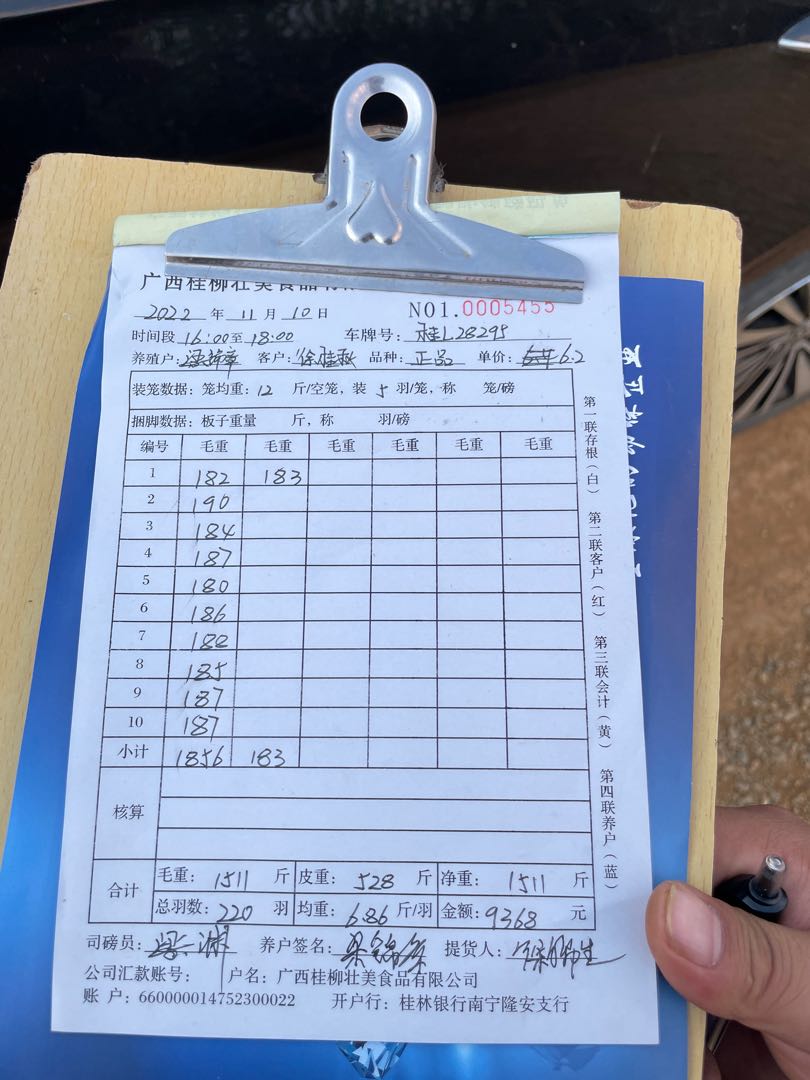 广西桂柳壮美食品有限
2022 年 11 月 10 日 NO1.0005455
时间段 16:00至 18:00 车牌号: 桂L28295
养殖户: 客户: 徐桂秋 品种: 正品 单价: 6.2
装笼数据: 笼均重: 12 斤/空笼, 装 5 羽/笼, 称 笼/磅
捆脚数据: 板子重量 斤, 称 羽/磅
编号 毛重 毛重 毛重 毛重 毛重 毛重
1 182 183
2 190
3 184
4 187
5 180
6 186
7 188
8 185
9 187
10 187
小计 1856 183
核算
合计 毛重: 1511 斤 皮重: 528 斤 净重: 1511 斤
总羽数: 220 羽 均重: 6.86 斤/羽 金额: 9368 元
司磅员: 养户签名: 提货人:
公司汇款账号: 户名: 广西桂柳壮美食品有限公司
账 户: 660000014752300022 开户行: 桂林银行南宁隆安支行
第一联存根(白) 第二联客户(红) 第三联会计(黄) 第四联养户(蓝)